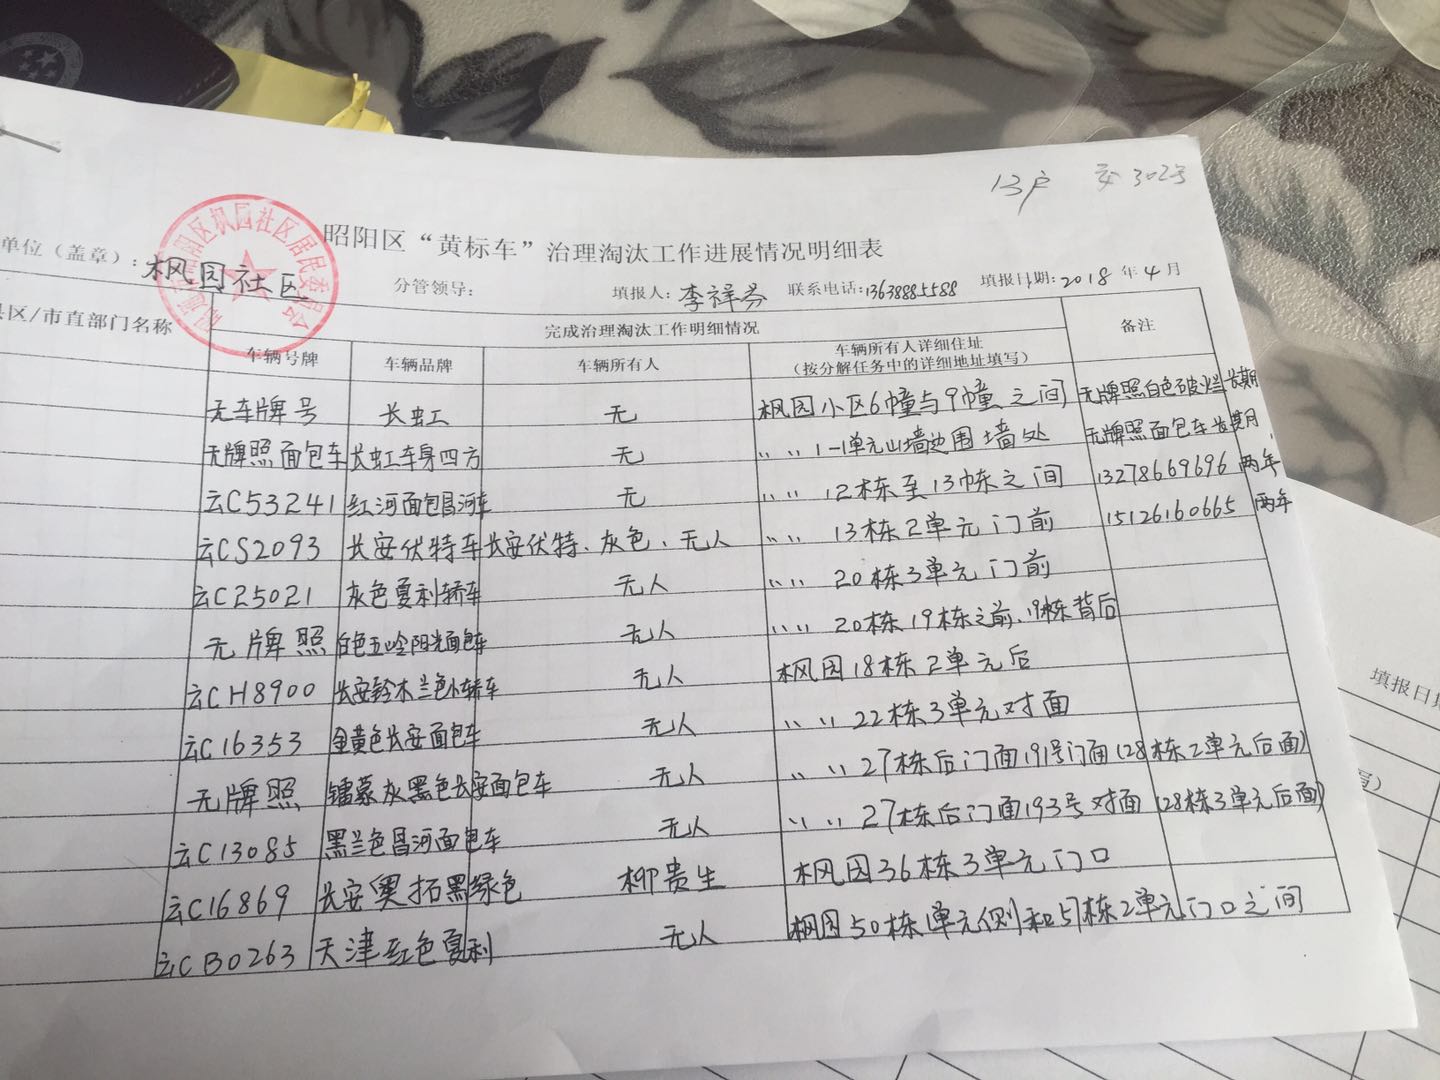 13户 303号
昭阳区“黄标车”治理淘汰工作进展情况明细表
单位（盖章）：枫园社区 分管领导： 填报人：李祥芬 联系电话：13638885588 填报日期：2018年4月
县区/市直部门名称 完成治理淘汰工作明细情况 备注
车辆号牌 车辆品牌 车辆所有人 车辆所有人详细住址
（按分解任务中的详细地址填写）
无车牌号 长虹 无 枫园小区6幢与9幢之间 无牌照白色破烂长期
无牌照面包车 长虹车身四方 无 〃 〃 1-1单元山墙边围墙处 无牌照面包车长期
云C53241 红河面包昌河车 无 〃 〃 12栋至13栋之间 13278669696 两年
云CS2093 长安伏特车 长安伏特、灰色、无人 〃 〃 13栋2单元门前 15126160665 两年
云C25021 灰色夏利轿车 无人 〃 〃 20栋3单元门前
无牌照 白色五呤阳光面包车 无人 〃 〃 20栋19栋之前、19栋背后
云CH8900 长安铃木兰色小轿车 无人 枫园18栋2单元后
云C16353 金黄色长安面包车 无人 〃 〃 22栋3单元对面
无牌照 镭蒙灰黑色长安面包车 无人 〃 〃 27栋后门面191号门面（28栋2单元后面）
云C13085 黑兰色昌河面包车 无人 〃 〃 27栋后门面193号对面（28栋3单元后面）
云C16869 长安奥拓黑绿色 柳贵生 枫园36栋3单元门口
云CB0263 天津红色夏利 无人 枫园50栋1单元侧和51栋2单元门口之间
填报日期
写）